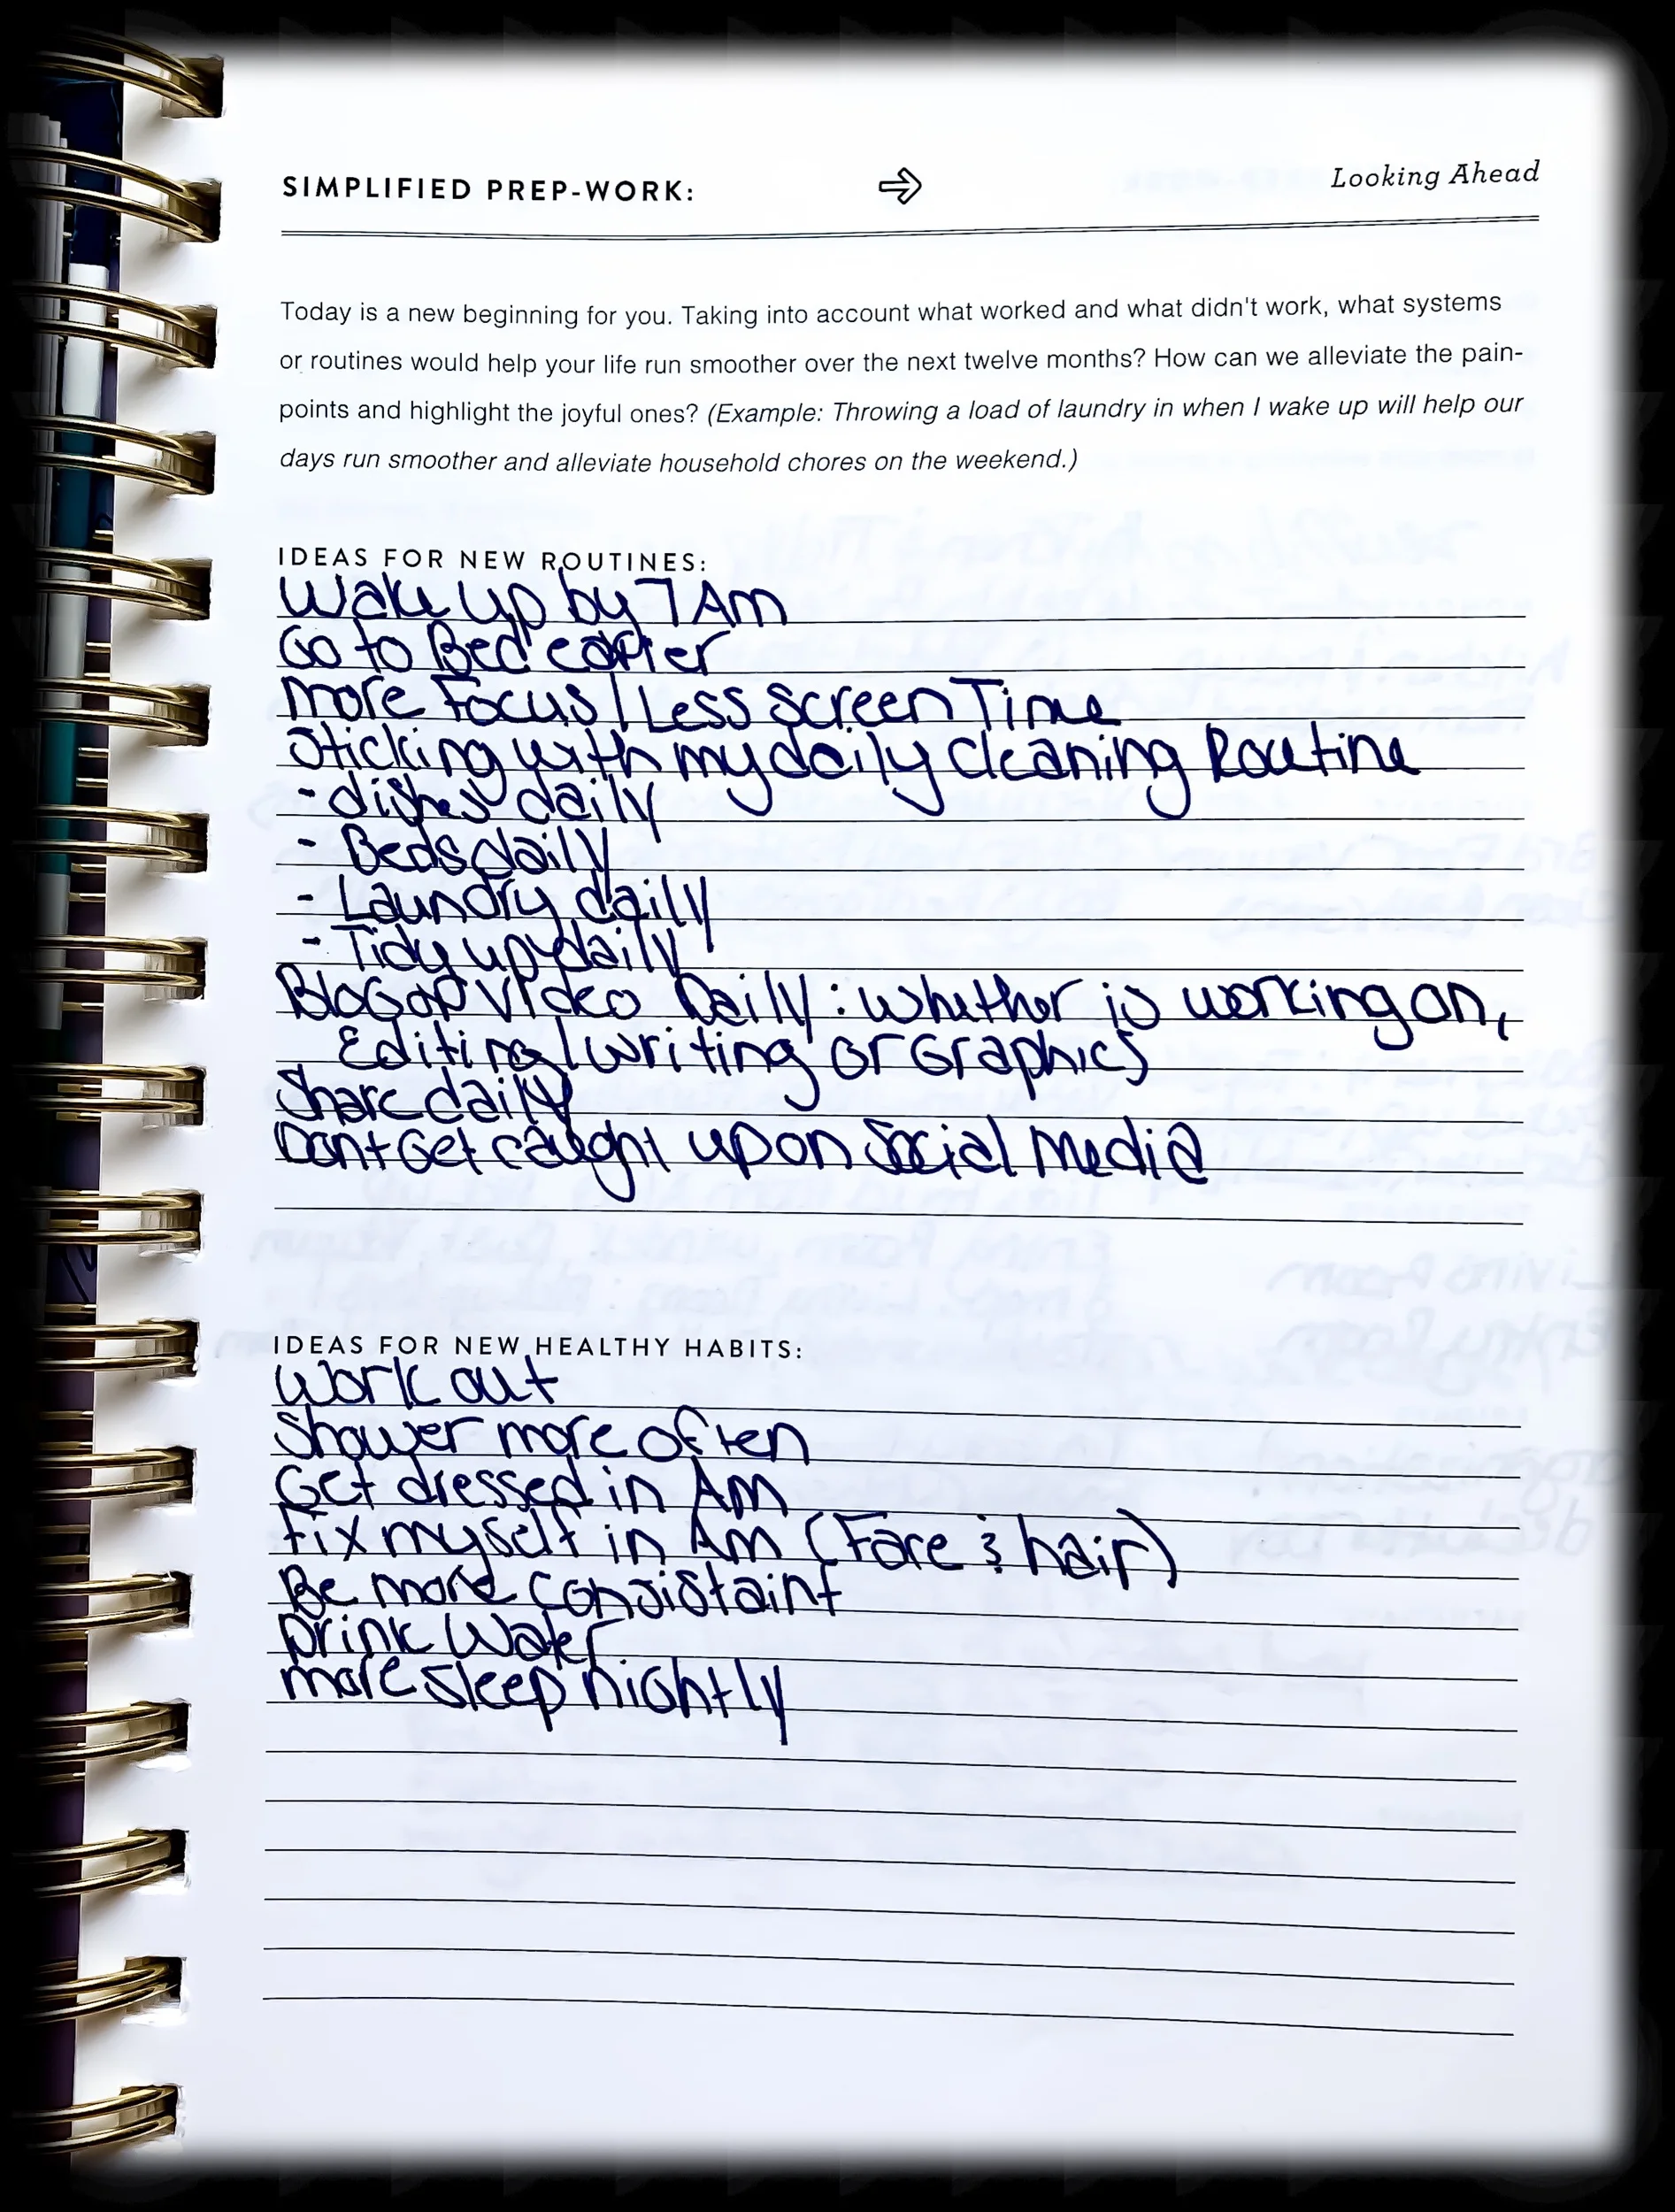 SIMPLIFIED PREP-WORK: ⇨ Looking Ahead
Today is a new beginning for you. Taking into account what worked and what didn't work, what systems
or routines would help your life run smoother over the next twelve months? How can we alleviate the pain-
points and highlight the joyful ones? (Example: Throwing a load of laundry in when I wake up will help our
days run smoother and alleviate household chores on the weekend.)
IDEAS FOR NEW ROUTINES:
Wake up by 7 AM
Go to Bed earlier
more Focus / Less Screen Time
Sticking with my daily cleaning Routine
- dishes daily
- Beds daily
- Laundry daily
- Tidy up daily
Blog or Video Daily: whether is working on,
Editing / writing or Graphics
Share daily
Dont Get caught up on Social Media
IDEAS FOR NEW HEALTHY HABITS:
Work out
Shower more often
Get dressed in AM
Fix myself in AM (Face & hair)
Be more consistaint
Drink Water
more sleep nightly